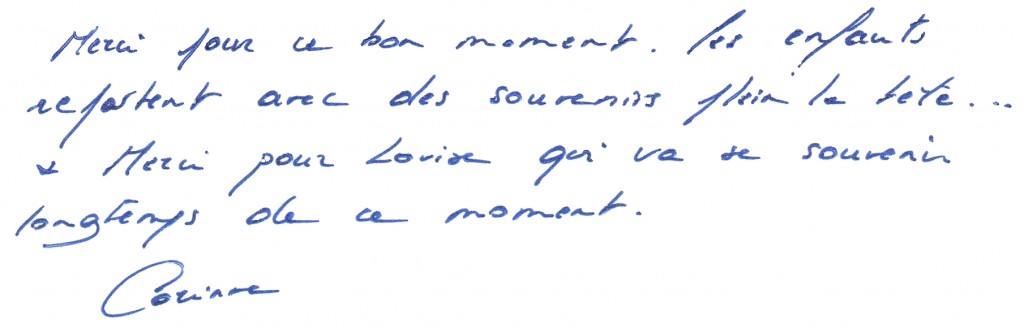 Merci pour ce bon moment. Les enfants
repartent avec des souvenirs plein la tête...
& Merci pour Louise qui va se souvenir
longtemps de ce moment.
Corinne